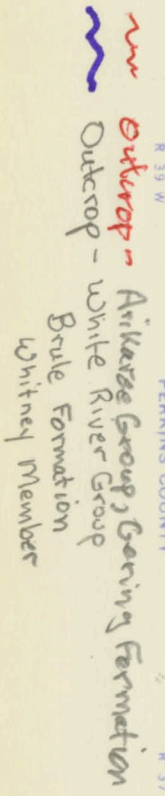 R 39 W PERKINS COUNTY R 37
Outcrop - Arikaree Group, Gering Formation
Outcrop - White River Group
Brule Formation
Whitney Member